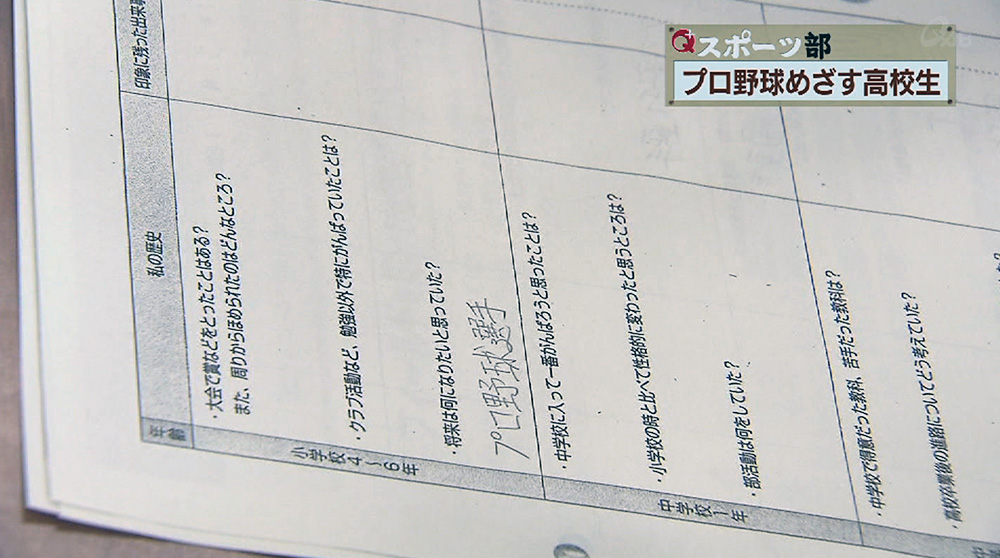 Q+スポーツ部
プロ野球めざす高校生
年齢
私の歴史
印象に残った出来事
小学校4～6年
・大会で賞などをとったことはある？
また、周りからほめられたのはどんなところ？
・クラブ活動など、勉強以外で特にがんばっていたことは？
・将来は何になりたいと思っていた？
プロ野球選手
中学校1年
・中学校に入って一番がんばろうと思ったことは？
・小学校の時と比べて性格的に変わったと思うところは？
・部活動は何をしていた？
・中学校で得意だった教科、苦手だった教科は？
・高校卒業後の進路についてどう考えていた？